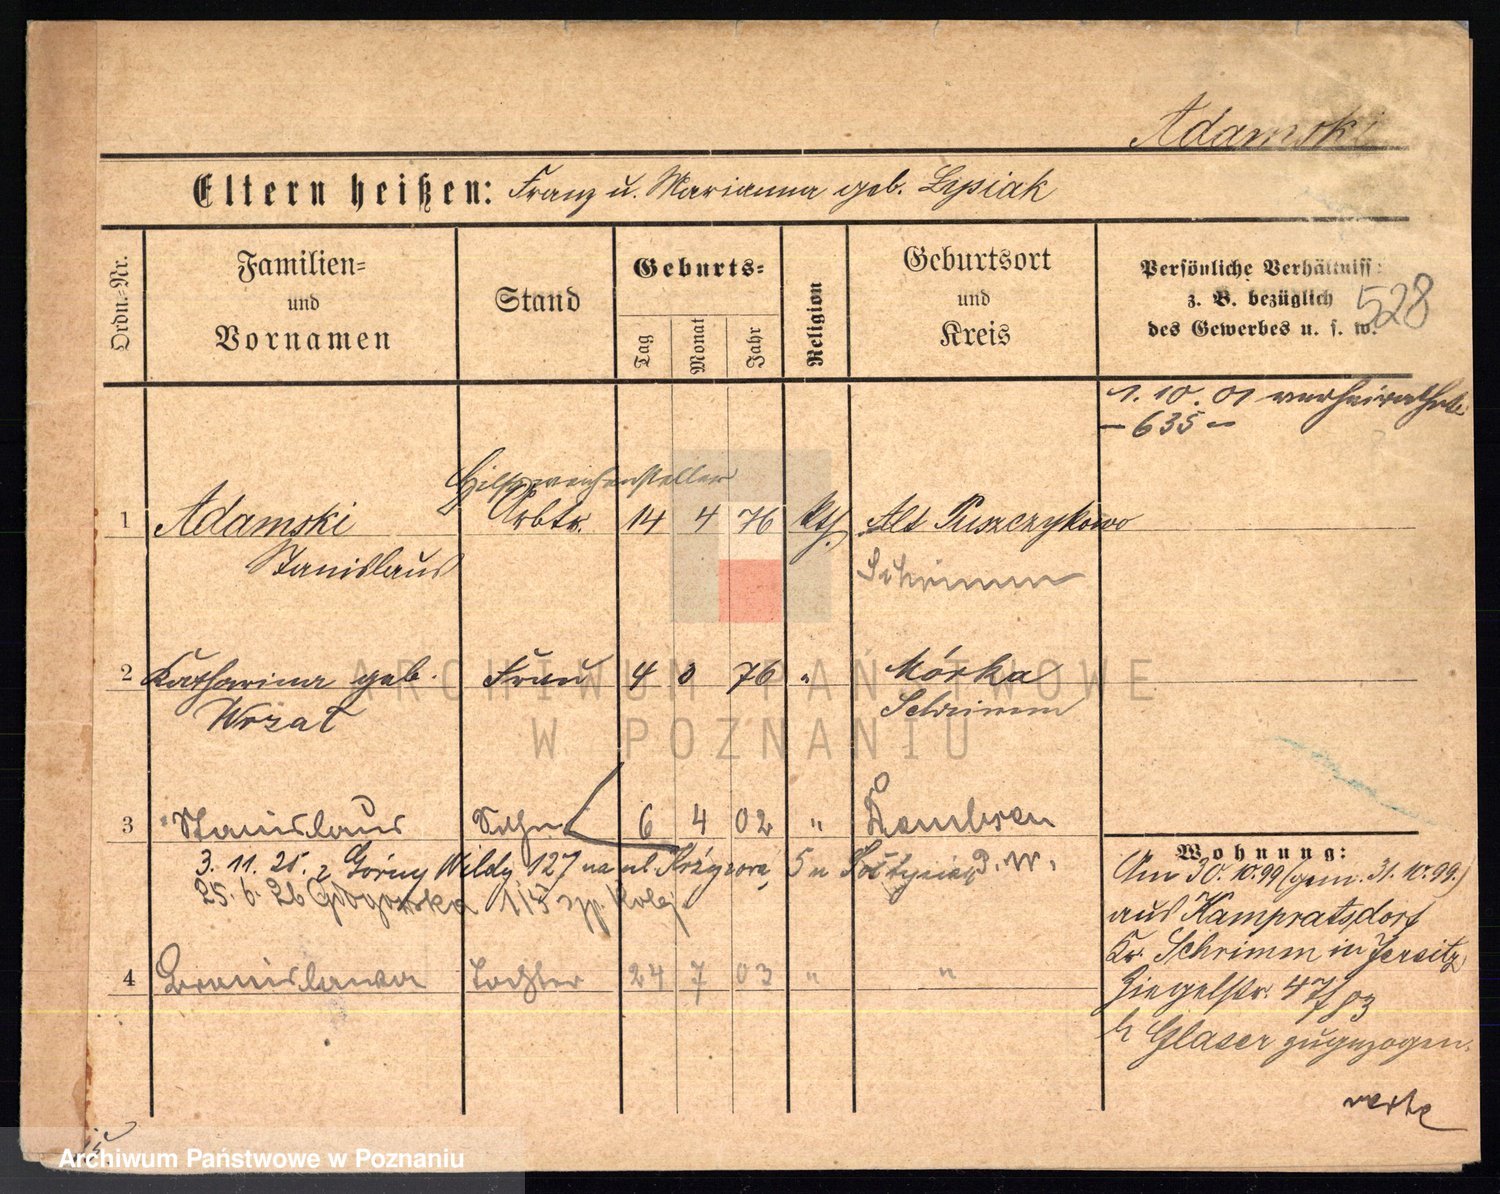 Adamski
Eltern heißen: Franz u. Marianna geb. Lysiak
Ordn.-Nr.
Familien-
und
Vornamen
Stand
Geburts-
Tag
Monat
Jahr
Religion
Geburtsort
und
Kreis
Persönliche Verhältniss
z. B. bezüglich
des Gewerbes u. s. w.
528
1. 10. 01 verheirathet
- 635 -
Hilfsweichensteller
1 Adamski Arbtr. 14 4 76 kth. Alt Puszczykowo
Stanislaus Schrimm
2 Katharina geb. Frau 4 76 " Mórka
Wrzat Schrimm
3 Stanislaus Sohn 6 4 02 "
3. 11. 25. z Górny Wildy 127 na ul. Krzyżową 5
25. 6. 26 Głogowska 113
4 Bronislawa Tochter 24 7 03 " "
Wohnung:
Am 30. 10. 99 (gem. 31. 10. 99.)
aus Kampratsdorf
Kr. Schrimm in Jersitz
Ziegelstr. 47/83
b Glaser zugezogen.
ARCHIWUM PAŃSTWOWE
W POZNANIU
Archiwum Państwowe w Poznaniu